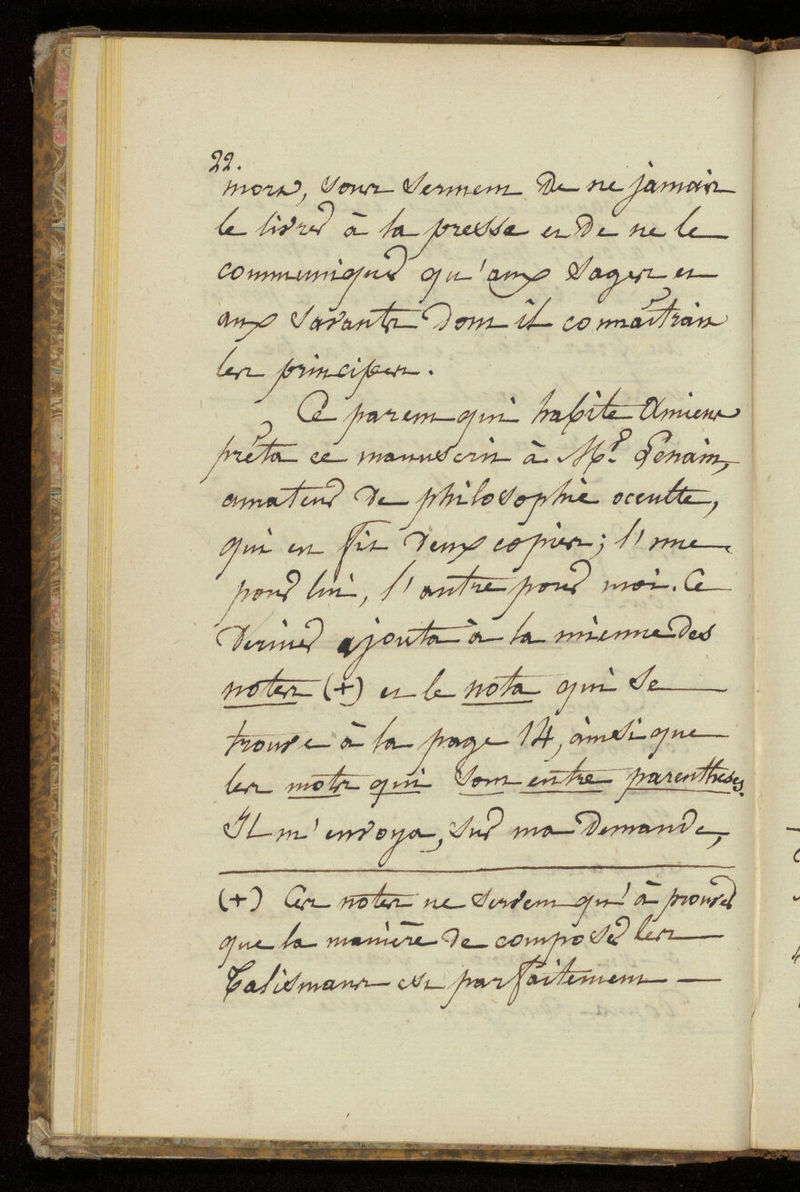 22.
mort, sous serment de ne jamais
le livrer à la presse et de ne le
communiquer qu'aux sages et
aux savants dont il connaîtrait
les principes.
Ce parent qui habite Amiens
prêta ce manuscrit à Mr. Lenain,
amateur de philosophie occulte,
qui en fit deux copies; l'une
pour lui, l'autre pour moi. Ce
dernier ajouta à la mienne des
notes (+) et le nota qui se
trouve à la page 14, ainsi que
les mots qui sont entre parenthèses.
Il m'envoya, sur ma demande,
(+) Ces notes ne servent qu'à prouver
que la manière de composer les
Talismans est parfaitement —